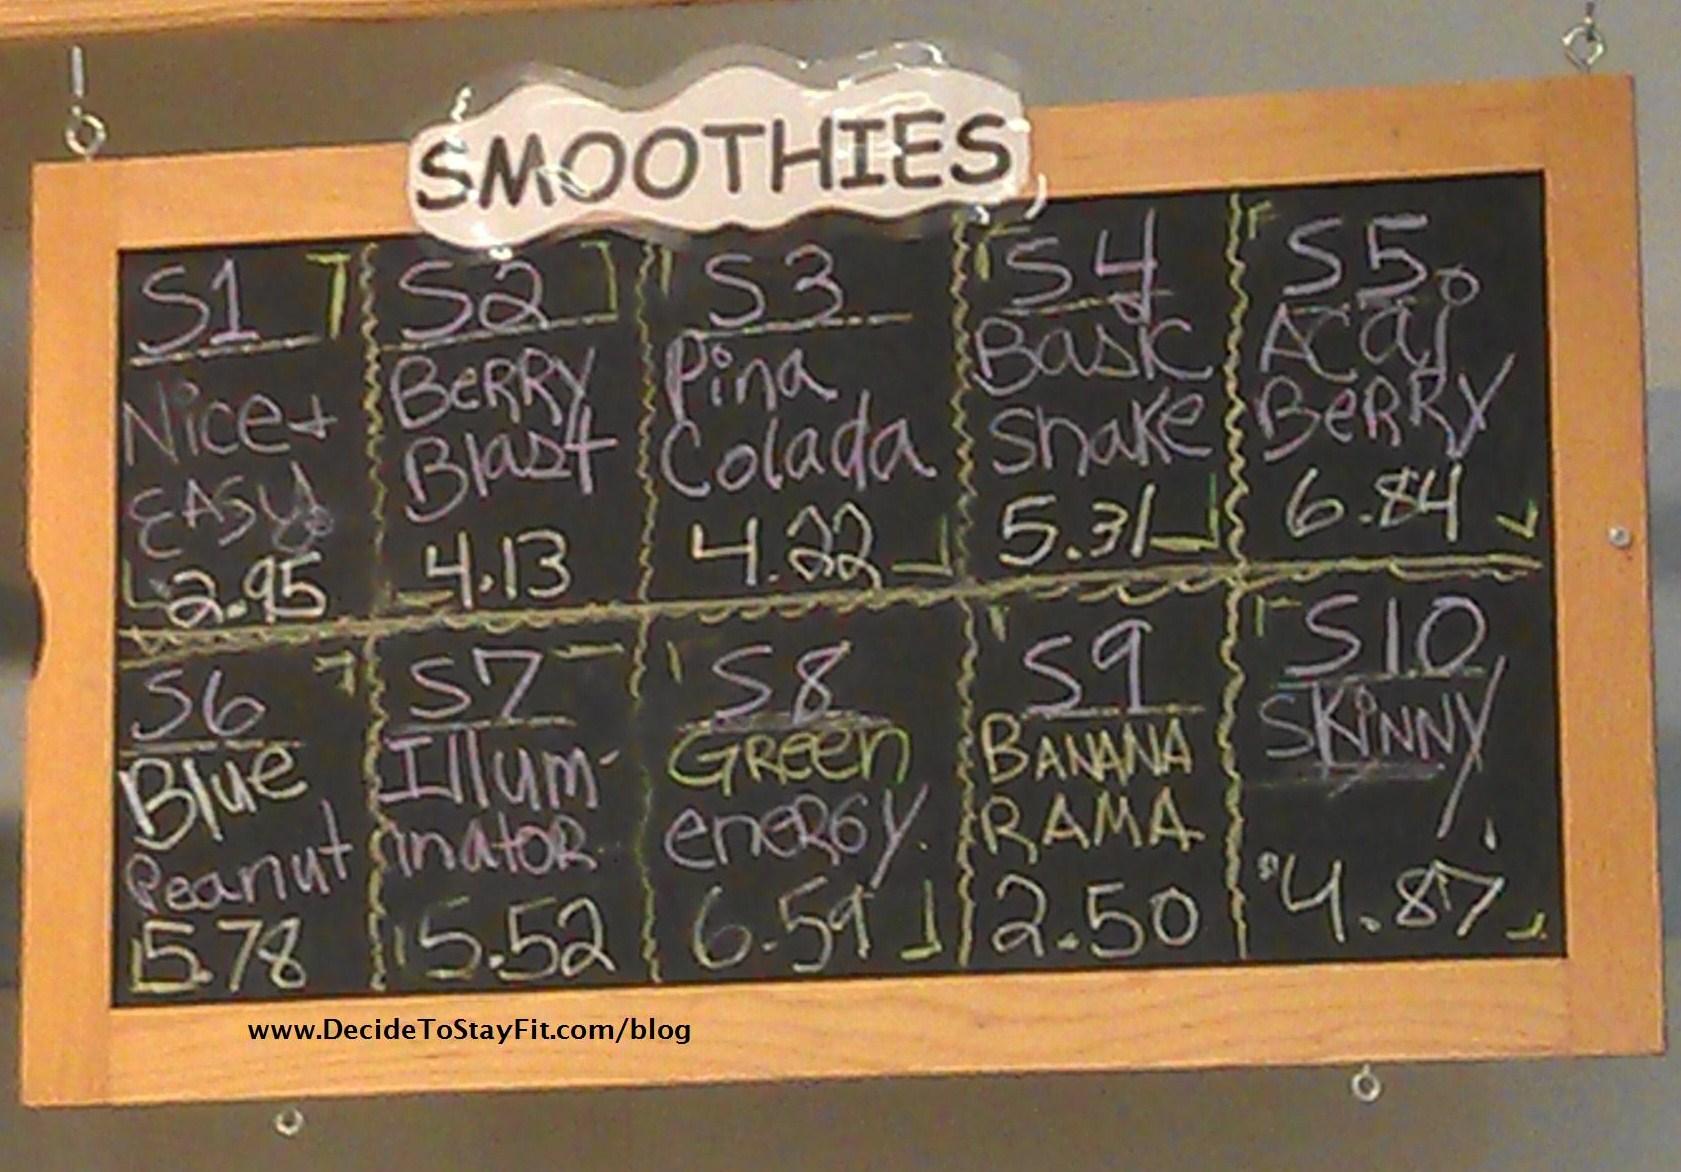 SMOOTHIES
S1
Nice +
EASY!
2.95
S2
BeRRY
Blast
4.13
S3
Pina
Colada
4.22
S4
Basic
Shake
5.31
S5
Acai
BeRRY
6.84
S6
Blue
Peanut
5.78
S7
Illum-
inator
5.52
S8
GReen
eneRGY
6.59
S9
BANANA
RAMA
2.50
S10
SKiNNY
$4.87
www.DecideToStayFit.com/blog